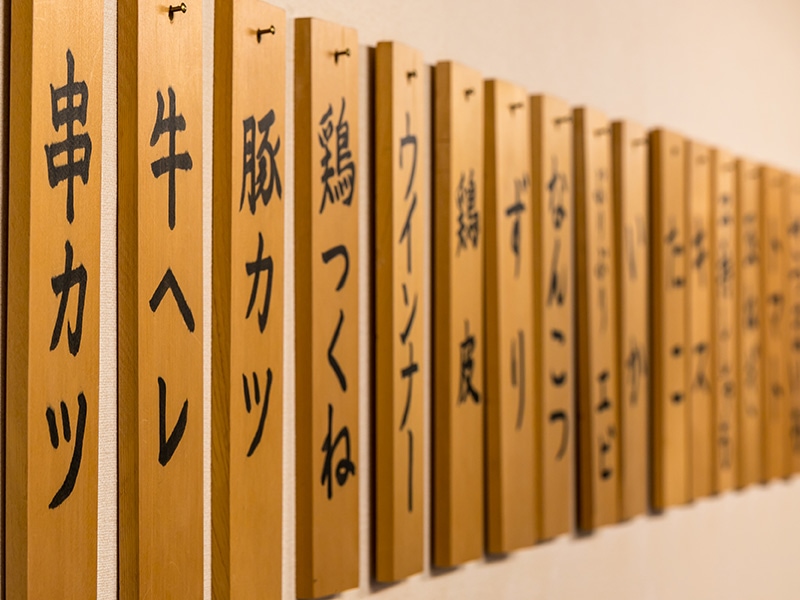 串カツ
牛ヘレ
豚カツ
鶏つくね
ウインナー
鶏皮
ずり
なんこつ
いか
たこ
キス